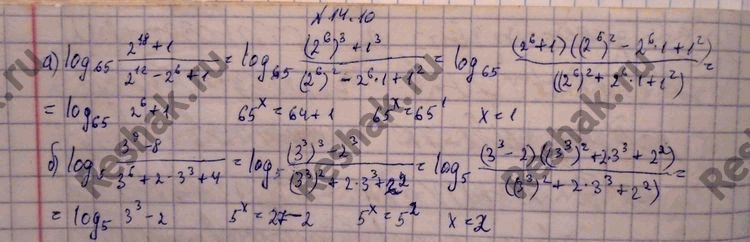 №14.10
а) log₆₅ (2¹⁸+1)/(2¹²-2⁶+1) = log₆₅ ((2⁶)³+1³)/((2⁶)²-2⁶·1+1²) = log₆₅ ((2⁶+1)((2⁶)²-2⁶·1+1²))/((2⁶)²+2⁶·1+1²) =
= log₆₅ 2⁶+1 65ˣ=64+1 65ˣ=65¹ x=1
б) log₅ (3⁹-8)/(3⁶+2·3³+4) = log₅ ((3³)³-2³)/((3³)²+2·3³+2²) = log₅ ((3³-2)((3³)²+2·3³+2²))/((3³)²+2·3³+2²) =
= log₅ 3³-2 5ˣ=27-2 5ˣ=5² x=2
Reshak.ru